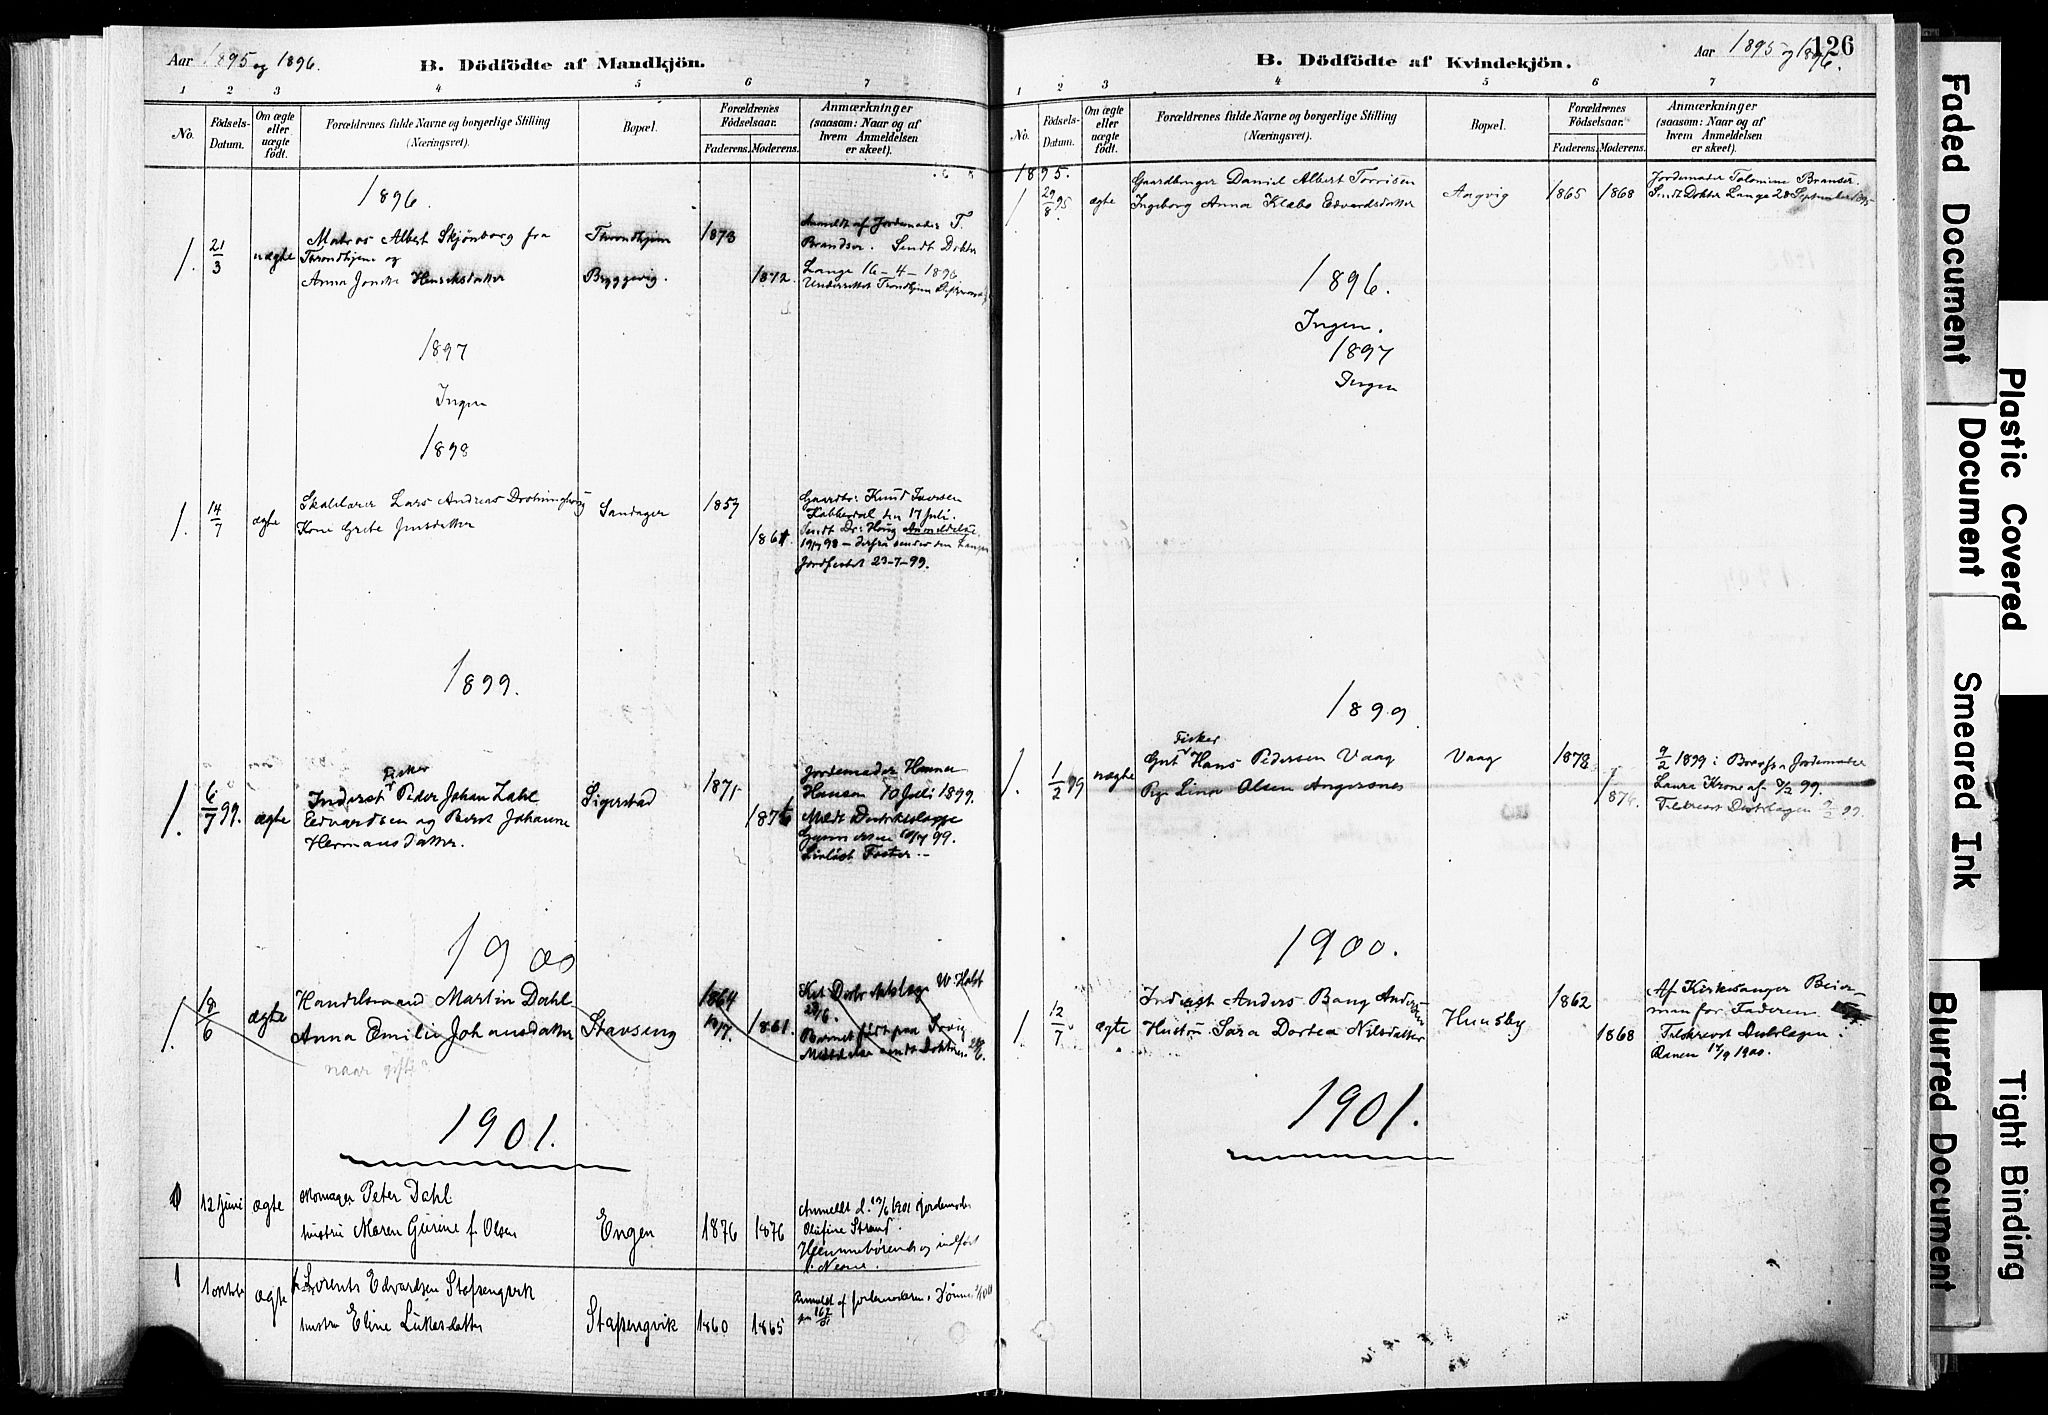 Aar 1895 og 1896.
B. Dödfödte af Mandkjön.
1 2 3 4 5 6 7
No.
Födsels-
Datum.
Om ægte
eller
uægte
födt.
Forældrenes fulde Navne og borgerlige Stilling
(Næringsvei).
Bopæl.
Forældrenes
Födselsaar.
Faderens. Moderens.
Anmærkninger
(saasom: Naar og af
hvem Anmeldelsen
er skeet).
1896.
1. 21/3 uægte
Matros Albert Skjönborg fra
Throndhjem og
Anna Henriksdatter
Throndhjem
Byggevig.
1873
1872.
Anmeldt af Jordemoder T.
Brandser. Sendt Dokter
Lange 16-4-1896
Underrettet Trondhjem
1897
Ingen
1898
1. 14/7 ægte
Skolelærer Lars Andreas Drotningsvig
Kone Grete Jensdatter
Sandager
1857
1861.
Gaardbr: Knud Iversen
Kobberdal den 17 Juli.
Sendt Dr: Houg Anmeldelse
Jordfæstet 23-7-99.
1899.
1. 6/7 99. ægte
Fisker
Inderst Peder Johan Zahl
Edvardsen og Berit Johanne
Hermansdatter.
Sigerstad
1871
Jordemoder Hanna
Hansen 10 Juli 1899.
Meldt Distriktslæge
10/7 99.
Livløst Foster.
1900
1. 18/6 ægte
Handelsmand Martin Dahl
Anna Emilie Johansdatter
naar gifte?
Stavseng
1864
1861.
1901.
1 12 Juni ægte
Peter Dahl
hustru Maren Gurine f. Olsen
Engen
1876 1876
Anmeldt d. 13/6 1901 Jordemoder
Olufine Strand.
Hjemmehørende og indført
i Nesne.
1 1 oktober ægte
Lorents Edvardsen Stafsengvik
hustru Eline Lukasdatter
Stafsengvik
1860 1865
Anmeldt af jordemoderen i Dönnes
126
B. Dödfödte af Kvindekjön.
Aar 1895 og 1896.
1 2 3 4 5 6 7
No.
Födsels-
Datum.
Om ægte
eller
uægte
födt.
Forældrenes fulde Navne og borgerlige Stilling
(Næringsvei).
Bopæl.
Forældrenes
Födselsaar.
Faderens. Moderens.
Anmærkninger
(saasom: Naar og af
hvem Anmeldelsen
er skeet).
1895.
1 29/8 95 ægte
Gaardbruger Daniel Albert Torrisen
Ingeborg Anna Klæbo Edvardsdatter
Aagvig
1865 1868
Jordemoder Tolomine Brandser.
Sendt Dokter Lange 28 September
1896.
Ingen.
1897
Ingen
1899
1. 1/2 99 uægte
Fisker
Gift Hans Pedersen Vaag
Pige Lina Olsen Angersnes
Vaag
1878
9/2 1899 i Brev fra Jordemoder
Laura Krone af 99.
Tilskrevet Distrlægen 9/2 99.
1900.
1 12/7 ægte
Inderst Anders Bang Andersen
Hustru Sara Dortea Nilsdatter
Huusby
1862
1868
Af Kirkesanger Beier-
man for Faderen.
Tilskrevet Distrlægen i
Ranen 17/9 1900.
1901.
Faded Document
Plastic Covered
Document
Smeared Ink
Blurred Document
Tight Binding